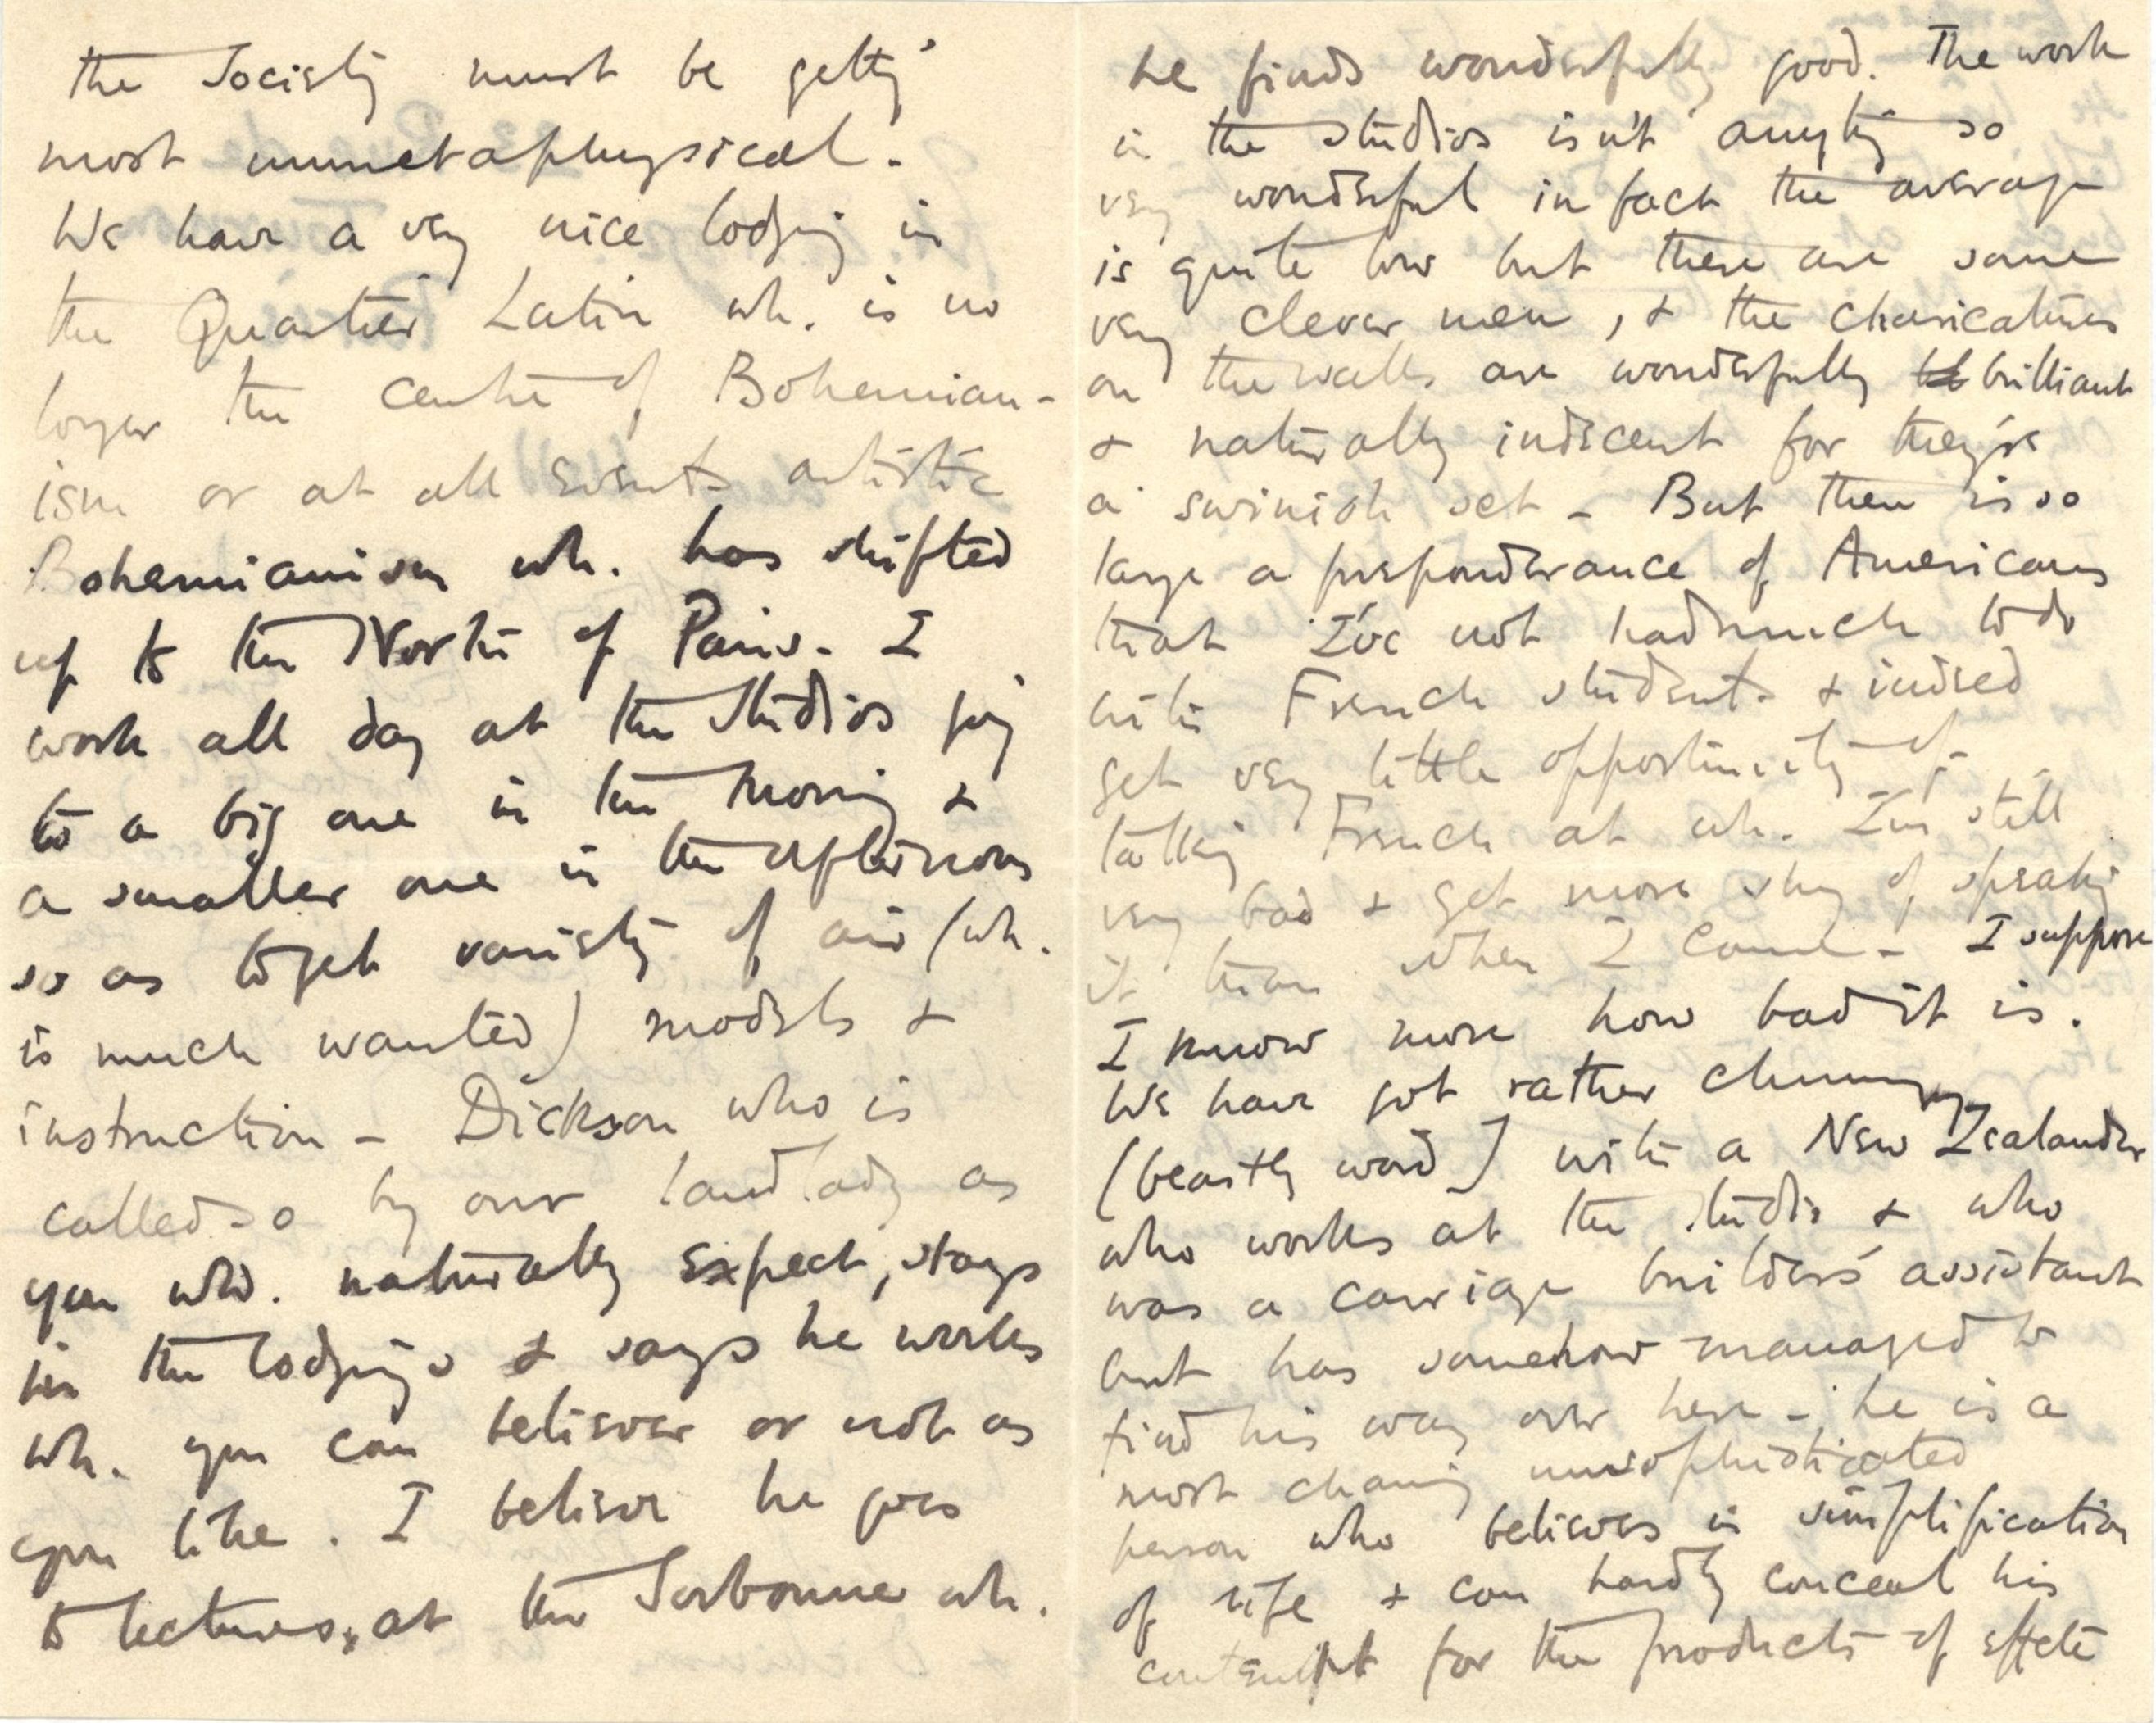 the Society must be getting
most unmetaphysical.
We have a very nice lodging in
the Quartier Latin wh. is no
longer the centre of Bohemian-
ism or at all events artistic
Bohemianism wh. has shifted
up to the North of Paris. I
work all day at the studios going
to a big one in the morning &
a smaller one in the afternoon
so as to get variety of air (wh.
is much wanted) models &
instruction – Dickson who is
called so by our landlady as
you wld. naturally expect, stays
in the lodgings & says he works
wh. you can believe or not as
you like. I believe he goes
to lectures, at the Sorbonne wh.
he finds wonderfully good. The work
in the studios isn't anything so
very wonderful in fact the average
is quite low but there are some
very clever men, & the charicatures
on the walls are wonderfully brilliant
& naturally indecent for they're
a swinish set – But there is so
large a preponderance of Americans
that I've not had much to do
with French students & indeed
get very little opportunity of
talking French at wh. I'm still
very bad & get more shy of speaking
it than when I came – I suppose
I know more how bad it is.
We have got rather chummy
(beastly word) with a New Zealander
who works at the studio & who
was a carriage builders' assistant
but has somehow managed to
find his way over here – he is a
most charming unsophisticated
person who believes in simplification
of life & can hardly conceal his
contempt for the products of effete